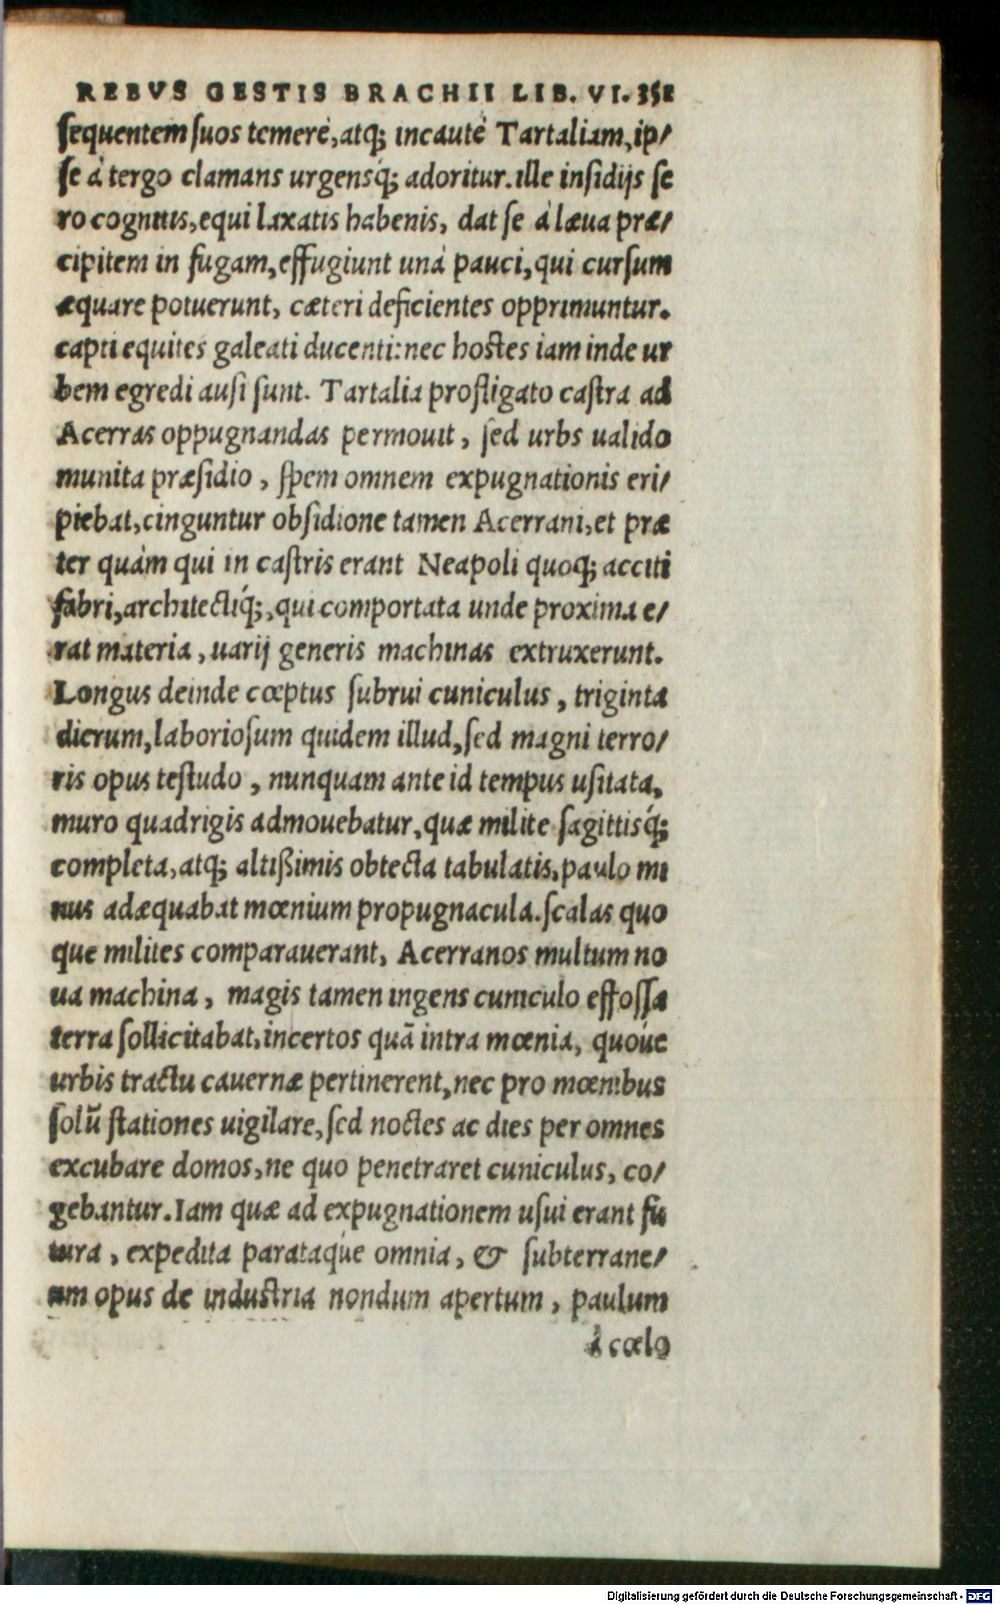 REBVS GESTIS BRACHII LIB. VI. 351
sequentem suos temerè, atq; incautè Tartaliam, ip/
se à tergo clamans urgensq́; adoritur. ille insidijs se
ro cognitis, equi laxatis habenis, dat se à læua præ/
cipitem in fugam, effugiunt unà pauci, qui cursum
æquare potuerunt, cæteri deficientes opprimuntur.
capti equites galeati ducenti: nec hostes iam inde ur
bem egredi ausi sunt. Tartalia profligato castra ad
Acerras oppugnandas permouit, sed urbs ualido
munita præsidio, spem omnem expugnationis eri/
piebat, cinguntur obsidione tamen Acerrani, et præ
ter quàm qui in castris erant Neapoli quoq; acciti
fabri, architectiq́;, qui comportata unde proxima e/
rat materia, uarij generis machinas extruxerunt.
Longus deinde cœptus subrui cuniculus, triginta
dierum, laboriosum quidem illud, sed magni terro/
ris opus testudo, nunquam ante id tempus usitata,
muro quadrigis admouebatur, quæ milite sagittisq́;
completa, atq; altißimis obtecta tabulatis, paulo mi
nus adæquabat mœnium propugnacula. scalas quo
que milites comparauerant, Acerranos multum no
ua machina, magis tamen ingens cuniculo effossa
terra sollicitabat, incertos quã intra mœnia, quoúe
urbis tractu cauernæ pertinerent, nec pro mœnibus
solũ stationes uigilare, sed noctes ac dies per omnes
excubare domos, ne quo penetraret cuniculus, co/
gebantur. Iam quæ ad expugnationem usui erant fu
tura, expedita parataqúe omnia, & subterrane/
um opus de industria nondum apertum, paulum
à cœlo
Digitalisierung gefördert durch die Deutsche Forschungsgemeinschaft - DFG